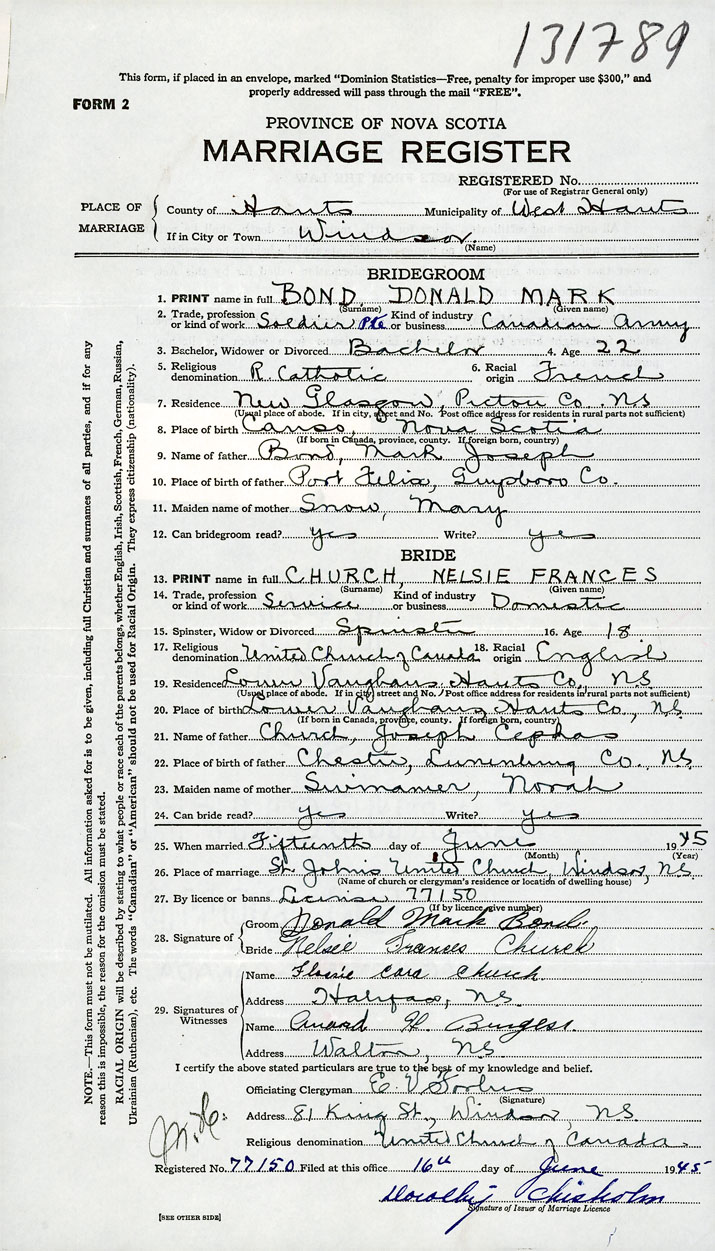 131789
This form, if placed in an envelope, marked “Dominion Statistics—Free, penalty for improper use $300,” and
properly addressed will pass through the mail “FREE”.
FORM 2
PROVINCE OF NOVA SCOTIA
MARRIAGE REGISTER
REGISTERED No.
(For use of Registrar General only)
PLACE OF MARRIAGE
County of Hants Municipality of West Hants
If in City or Town Windsor
(Name)
BRIDEGROOM
1. PRINT name in full BOND, DONALD MARK
(Surname) (Given name)
2. Trade, profession or kind of work Soldier Pte Kind of industry or business Canadian Army
3. Bachelor, Widower or Divorced Bachelor 4. Age 22
5. Religious denomination R Catholic 6. Racial origin French
7. Residence New Glasgow, Pictou Co. NS
(Usual place of abode. If in city, street and No. Post office address for residents in rural parts not sufficient)
8. Place of birth Canso, Nova Scotia
(If born in Canada, province, county. If foreign born, country)
9. Name of father Bond, Mark Joseph
10. Place of birth of father Port Felix, Guysboro Co.
11. Maiden name of mother Snow, Mary
12. Can bridegroom read? yes Write? yes
BRIDE
13. PRINT name in full CHURCH, NELSIE FRANCES
(Surname) (Given name)
14. Trade, profession or kind of work Service Kind of industry or business Domestic
15. Spinster, Widow or Divorced Spinster 16. Age 18
17. Religious denomination United Church of Canada 18. Racial origin English
19. Residence Lower Vaughans Hants Co., NS
(Usual place of abode. If in city street and No. Post office address for residents in rural parts not sufficient)
20. Place of birth Lower Vaughans Hants Co., N.S.
(If born in Canada, province, county. If foreign born, country)
21. Name of father Church, Joseph Cephas
22. Place of birth of father Chester, Lunenburg Co., N.S.
23. Maiden name of mother Swinamer, Norah
24. Can bride read? yes Write? yes
25. When married Fifteenth day of June 1945
(Month) (Year)
26. Place of marriage St. Johns United Church, Windsor, N.S.
(Name of church or clergyman's residence or location of dwelling house)
27. By licence or banns License 77150
(If by licence, give number)
28. Signature of
Groom Donald Mark Bond
Bride Nelsie Frances Church
29. Signatures of Witnesses
Name Cora Church
Address Halifax, N.S.
Name H. Burgess
Address Walton, NS
I certify the above stated particulars are true to the best of my knowledge and belief.
Officiating Clergyman E. V. Forbes
(Signature)
Address 81 King St., Windsor, N.S.
Religious denomination United Church of Canada.
Registered No. 77150 Filed at this office 16th day of June 1945
Dorothy Chisholm
Signature of Issuer of Marriage Licence
[SEE OTHER SIDE]
NOTE.—This form must not be mutilated. All information asked for is to be given, including full Christian and surnames of all parties, and if for any
reason this is impossible, the reason for the omission must be stated.
RACIAL ORIGIN will be described by stating to what people or race each of the parents belongs, whether English, Irish, Scottish, French, German, Russian,
Ukrainian (Ruthenian), etc. The words “Canadian” or “American” should not be used for Racial Origin. They express citizenship (nationality).